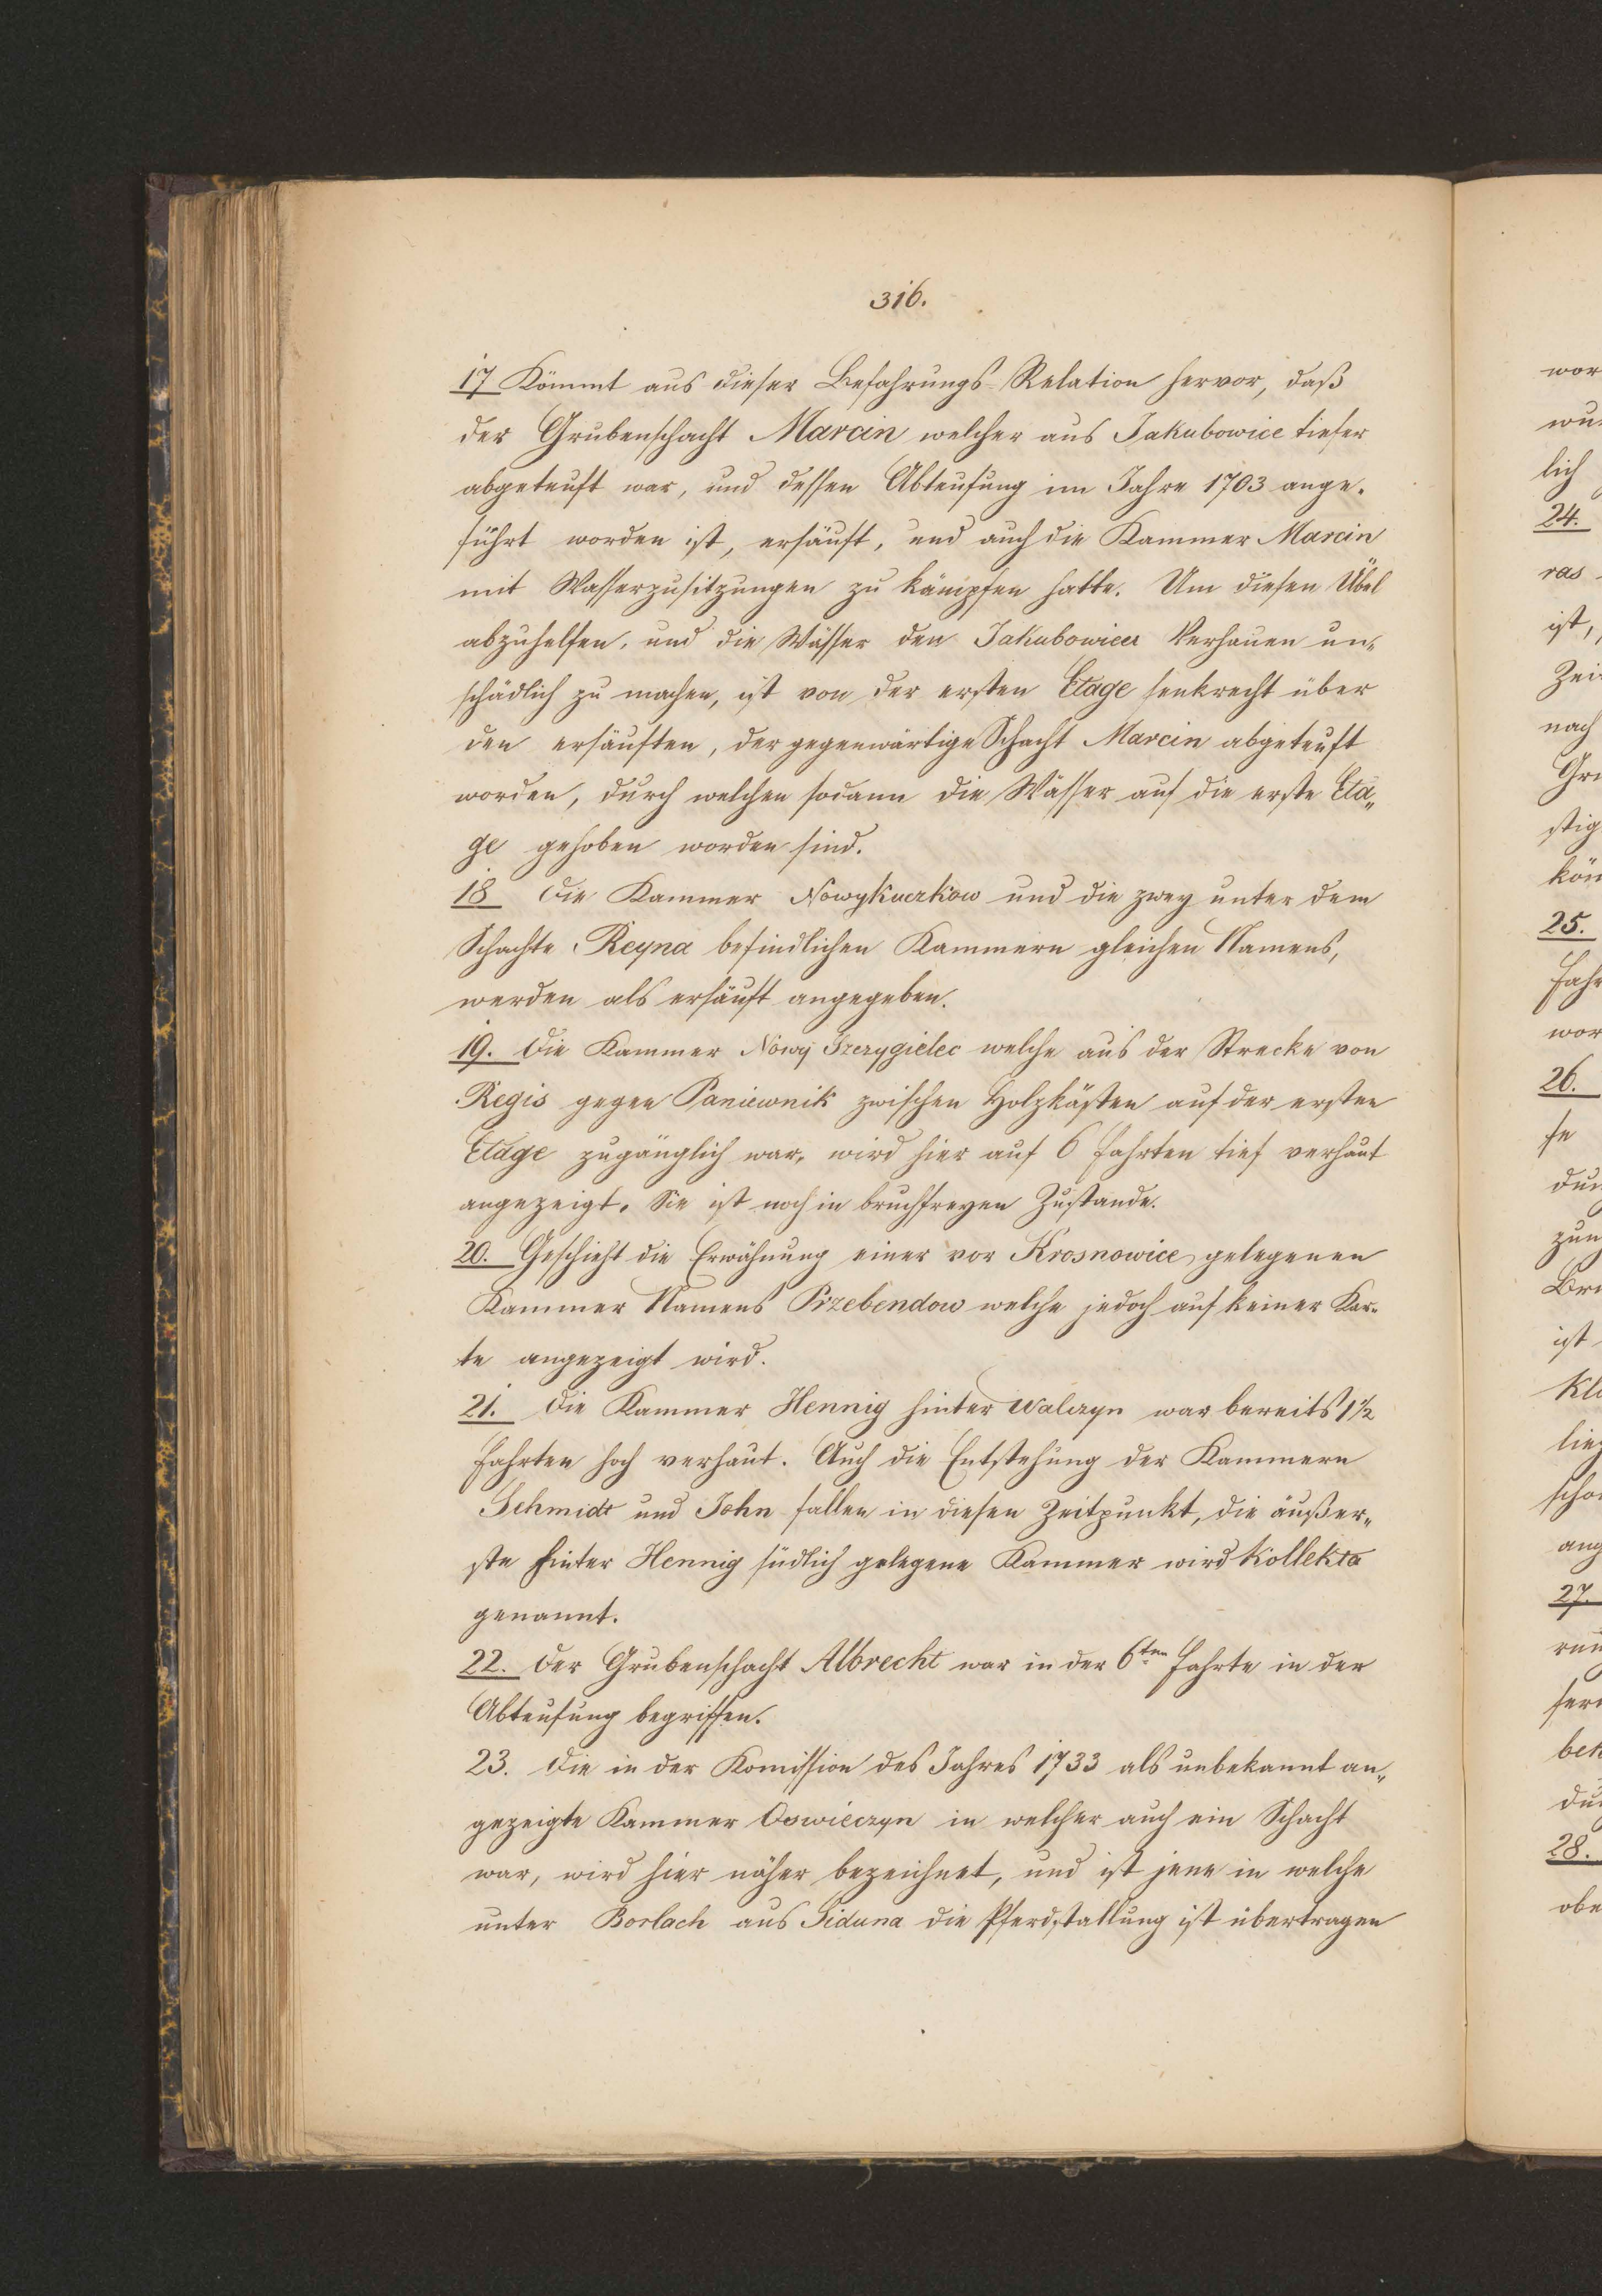 316.
17 Kömmt aus dieser Befahrungs-Relation hervor, daß
der Grubenschacht Marcin welcher aus Jakubowice tiefer
abgeteuft war, und dessen Abteufung im Jahre 1703 ange-
führt worden ist, ersäuft, und auch die Kammer Marcin
mit Wasserzusitzungen zu kämpfen hatte. Um diesen Übel
abzuhelfen, und die Wässer den Jakubowicer Verhauen un-
schädlich zu machen, ist von der ersten Etage senkrecht über
den ersäuften, der gegenwärtige Schacht Marcin abgeteuft
worden, durch welchen sodann die Wässer auf die erste Eta-
ge gehoben worden sind.
18 Die Kammer Nowykuczkow und die zwey unter dem
Schachte Reyna befindlichen Kammern gleichen Namens,
werden als ersäuft angegeben.
19. Die Kammer Nowy welche aus der Strecke von
Regis gegen Paniewnik zwischen Holzkästen auf der ersten
Etage zugänglich war, wird hier auf 6 Fahrten tief verhaut
angezeigt. Sie ist noch in bruchfreyen Zustande.
20. Geschieht die Erwähnung einer vor Krosnowice gelegenen
Kammer Namens Przebendow welche jedoch auf keiner Kar-
te angezeigt wird.
21. Die Kammer Hennig hinter Walczyn war bereits 1½
Fahrten hoch verhaut. Auch die Entstehung der Kammern
Schmidt und John fallen in diesen Zeitpunkt, die äußer-
ste hinter Hennig südlich gelegene Kammer wird Kollekta
genannt.
22. Der Grubenschacht Albrecht war in der 6ten Fahrte in der
Abteufung begriffen.
23. Die in der Komission des Jahres 1733 als unbekannt an-
gezeigte Kammer Oswieczyn in welcher auch ein Schacht
war, wird hier näher bezeichnet, und ist jene in welche
unter Borlach aus die Pferdstallung ist übertragen
wor
lich
24.
ras
ist,
Zei
nach
stig
25.
Fah
wor
26.
se
ist
ang
27.
28.
obe